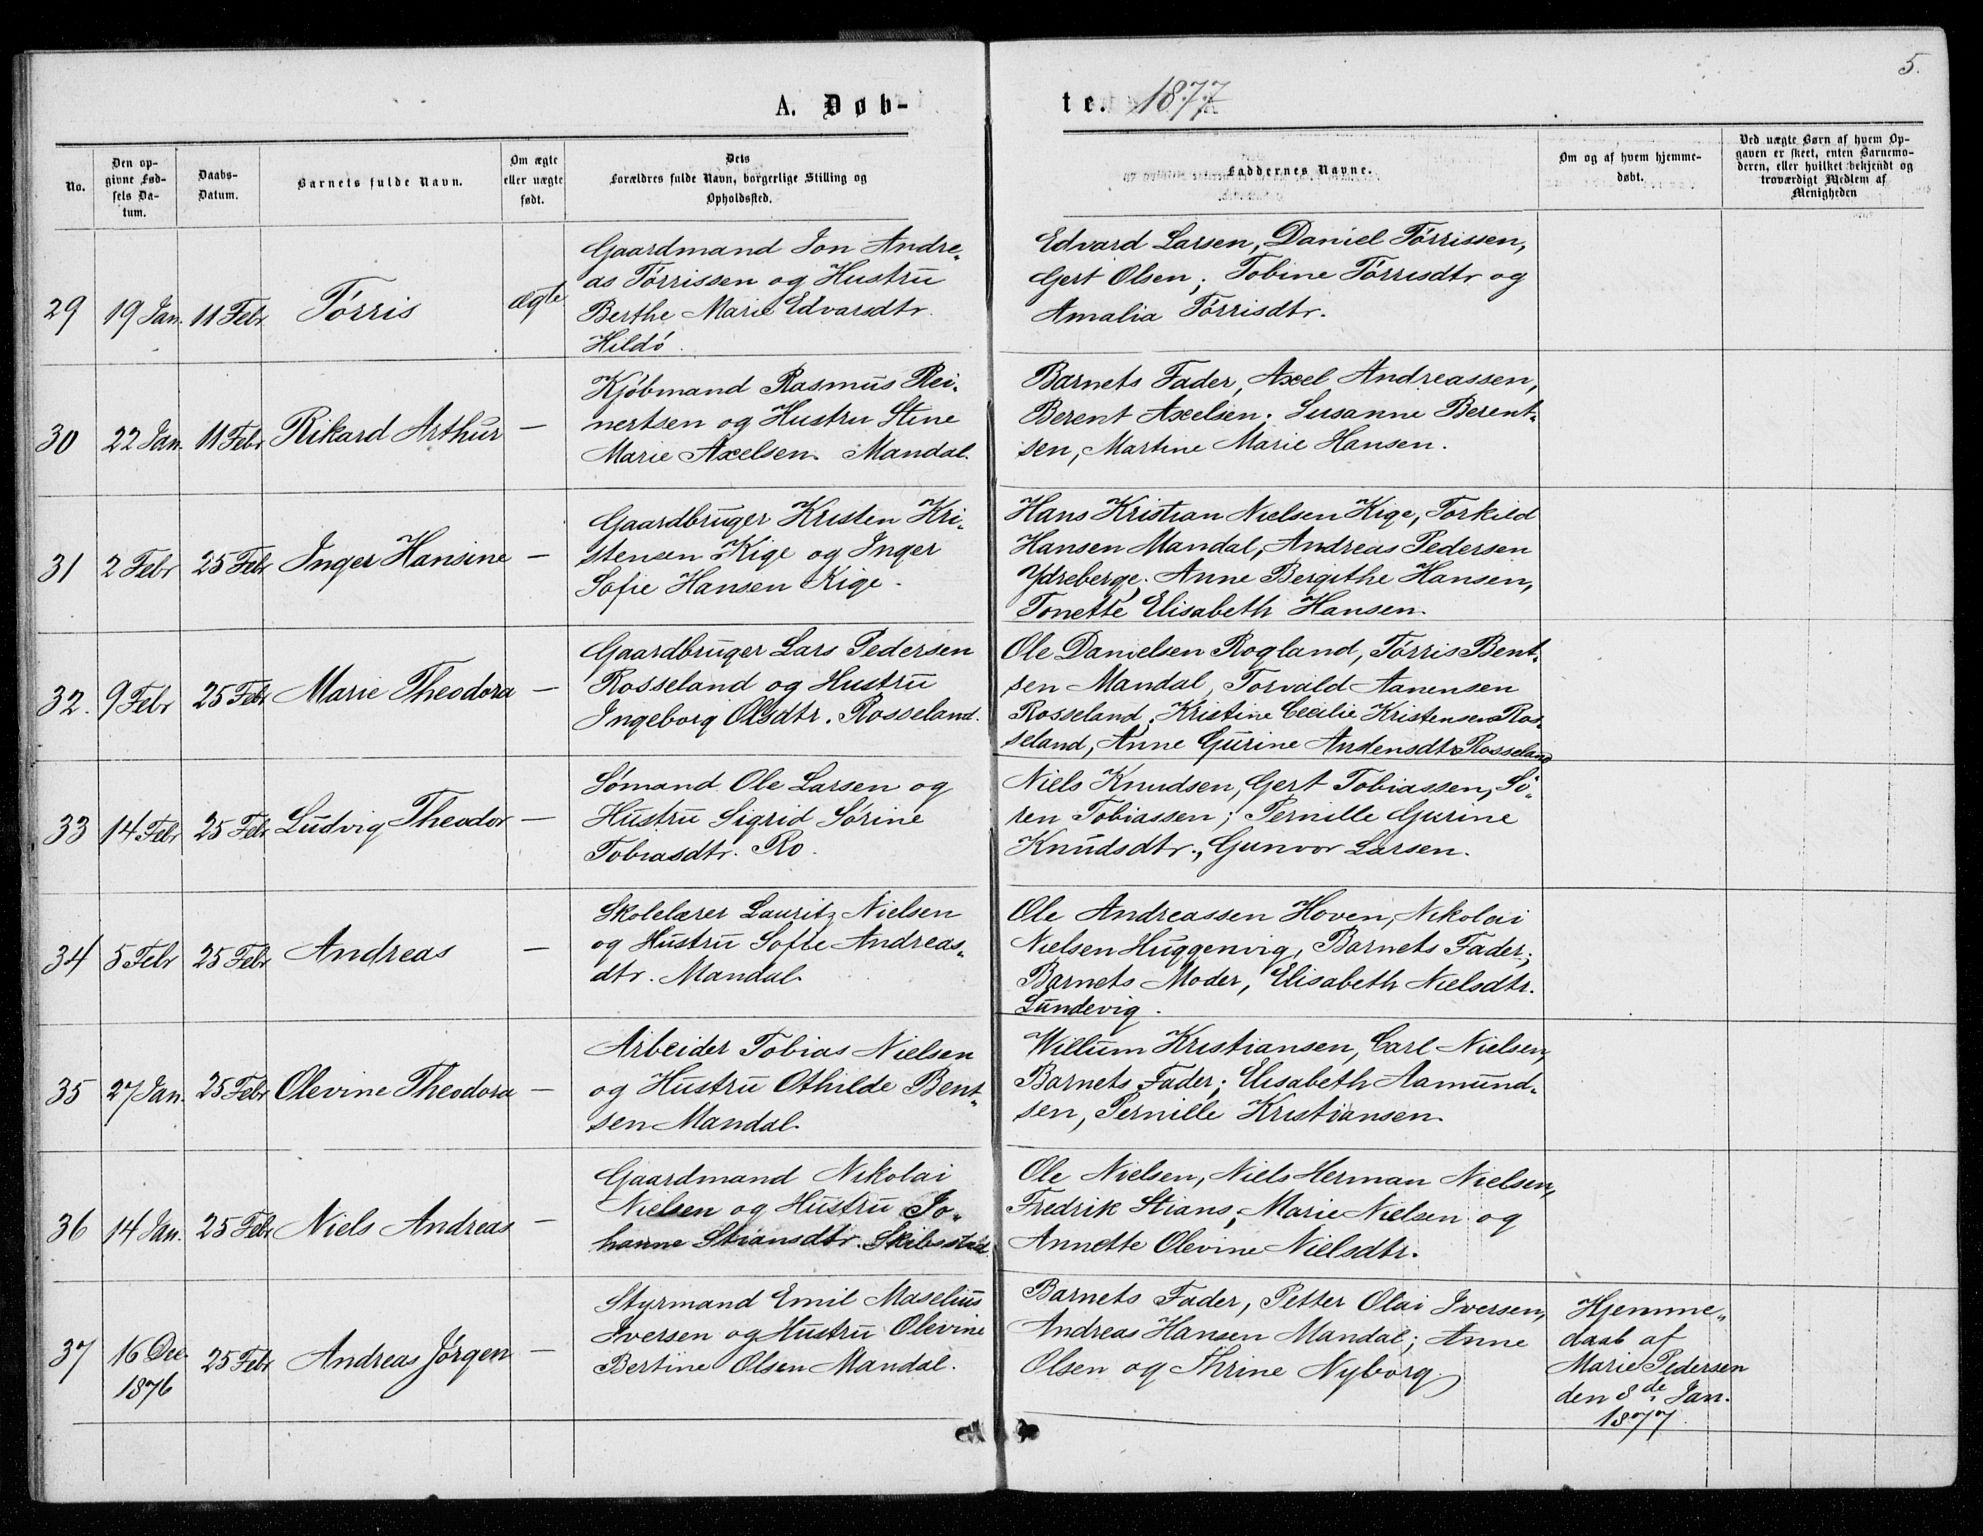 5.
A. Døb-
te. 1877
No.
Den op-
givne Fød-
sels Da-
tum.
Daabs-
Datum.
Barnets fulde Navn.
Om ægte
eller uægte
født.
Dets
Forældres fulde Navn, borgerlige Stilling og
Opholdssted.
Faddernes Navne.
Om og af hvem hjemme-
døbt.
Ved uægte Børn af hvem Op-
gaven er skeet, enten Barnemo-
deren, eller hvilket bekjendt og
troværdigt Medlem af
Menigheden
29 19 Jan. 11 Febr Tórris ægte
Gaardmand Jon Andre-
as Tórrissen og Hustru
Berthe Marie Edvarsdtr.
Hildó.
Edvard Larsen, Daniel Tórrissen,
Gert Olsen; Tobine Tórrisdtr og
Amalia Tórrisdtr.
30 22 Jan. 11 Febr Rikard Arthur —
Kjóbmand Rasmus Rei-
nertsen og Hustru Stine
Marie Axelsen. Mandal.
Barnets Fader, Axel Andreassen,
Berent Axelsen; Susanne Berent-
sen, Martine Marie Hansen.
31 2 Febr 25 Febr Inger Hansine —
Gaardbruger Kristen Kri-
stensen Kige og Inger
Sofie Hansen Kige.
Hans Kristian Nielsen Kige, Torkild
Hansen Mandal, Andreas Pedersen
Ydreberge. Anne Bergithe Hansen,
Tonette Elisabeth Hansen.
32. 9 Febr 25 Febr Marie Theodora —
Gaardbruger Lars Pedersen
Rosseland og Hustru
Ingeborg Olsdtr. Rosseland.
Ole Danielsen Rogland, Tórris Bent-
sen Mandal, Torvald Aanensen
Rosseland; Kristine Cecilie Kristensen Ros-
seland, Anne Gurine Andensdtr Rosseland
33 14 Febr 25 Febr Ludvig Theodor —
Sómand Ole Larsen og
Hustru Sigrid Sórine
Tobiasdtr. Ro.
Niels Knudsen, Gert Tobiassen, Só-
ren Tobiassen; Pernille Gurine
Knudsdtr., Gunvor Larsen.
34 5 Febr 25 Febr Andreas —
Skolelærer Lauritz Nielsen
og Hustru Sofie Andreas-
dtr. Mandal.
Ole Andreassen Hoven, Nikolai
Nielsen Huggenvig, Barnets Fader;
Barnets Moder, Elisabeth Nielsdtr.
Lundevig.
35 27 Jan. 25 Febr Olevine Theodora —
Arbeider Tobias Nielsen
og Hustru Othilde Bent-
sen Mandal.
Willum Kristiansen, Carl Nielsen,
Barnets Fader; Elisabeth Aamund-
sen, Pernille Kristiansen.
36 14 Jan. 25 Febr Niels Andreas —
Gaardmand Nikolai
Nielsen og Hustru Jo-
hanne Stiansdtr. Skibsstad
Ole Nielsen, Niels Herman Nielsen,
Fredrik Stians; Marie Nielsen og
Annette Olevine Nielsdtr.
37 16 Dec. 1876 25 Febr Andreas Jórgen —
Styrmand Emil Maselius
Iversen og Hustru Olevine
Bertine Olsen Mandal.
Barnets Fader, Petter Olai Iversen,
Andreas Hansen Mandal; Anne
Olsen og Thrine Nyborg.
Hjemme-
daab af
Marie Pedersen
den 8de Jan.
1877.